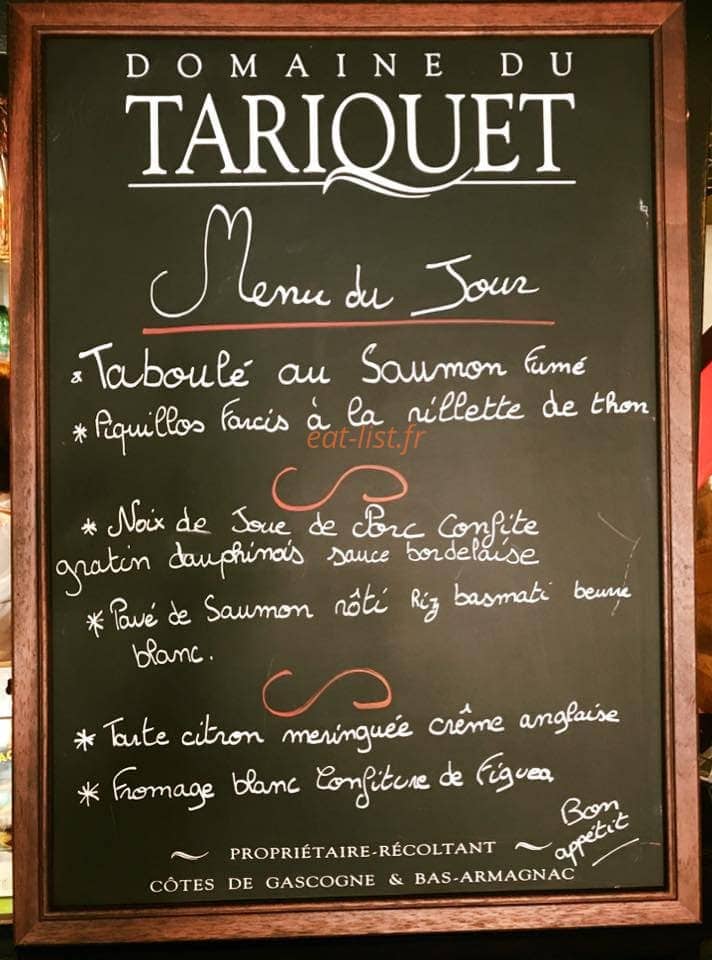 DOMAINE DU
TARIQUET
Menu du Jour
* Taboulé au Saumon fumé
* Piquillos farcis à la rillette de thon
eat-list.fr
* Noix de Joue de Porc Confite
gratin dauphinois sauce bordelaise
* Pavé de Saumon rôti Riz basmati beurre
blanc.
* Tarte citron meringuée crême anglaise
* Fromage blanc Confiture de Figues
Bon
appétit
PROPRIÉTAIRE-RÉCOLTANT
CÔTES DE GASCOGNE & BAS-ARMAGNAC